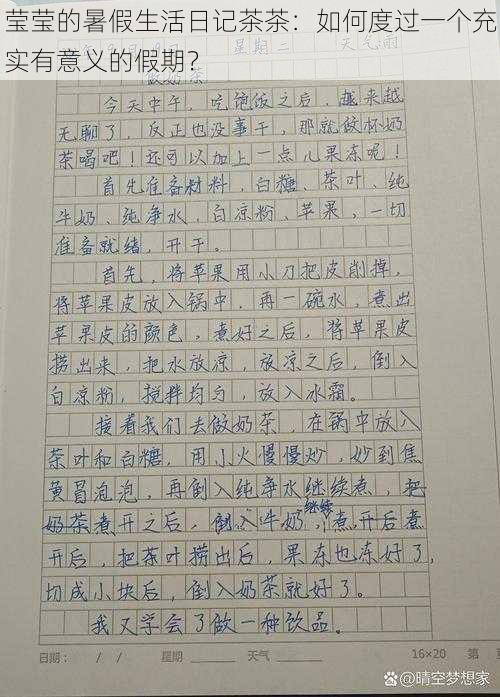 莹莹的暑假生活日记茶茶：如何度过一个充
实有意义的假期？
星期二 天气雨
做奶茶
今天中午，吃饱饭之后，越来越
无聊了，反正也没事干，那就做杯奶
茶喝吧！还可以加上一点儿果冻呢！
首先准备材料，白糖、茶叶、纯
牛奶、纯净水，白凉粉、苹果，一切
准备就绪，开干。
首先，将苹果用小刀把皮削掉，
将苹果皮放入锅中，再一碗水，煮出
苹果皮的颜色，煮好之后，将苹果皮
捞出来，把水放凉，放凉之后，倒入
白凉粉，搅拌均匀，放入冰霜。
接着我们去做奶茶，在锅中放入
茶叶和白糖，用小火慢慢炒，炒到焦
黄冒泡泡，再倒入纯净水继续煮，把
奶茶煮开之后，倒入牛奶，继续煮开后煮
开后，把茶叶捞出后，果冻也冻好了，
切成小块后，倒入奶茶就好了。
我又学会了做一种饮品。
日期： / / 星期 天气 16×20 第
@晴空梦想家